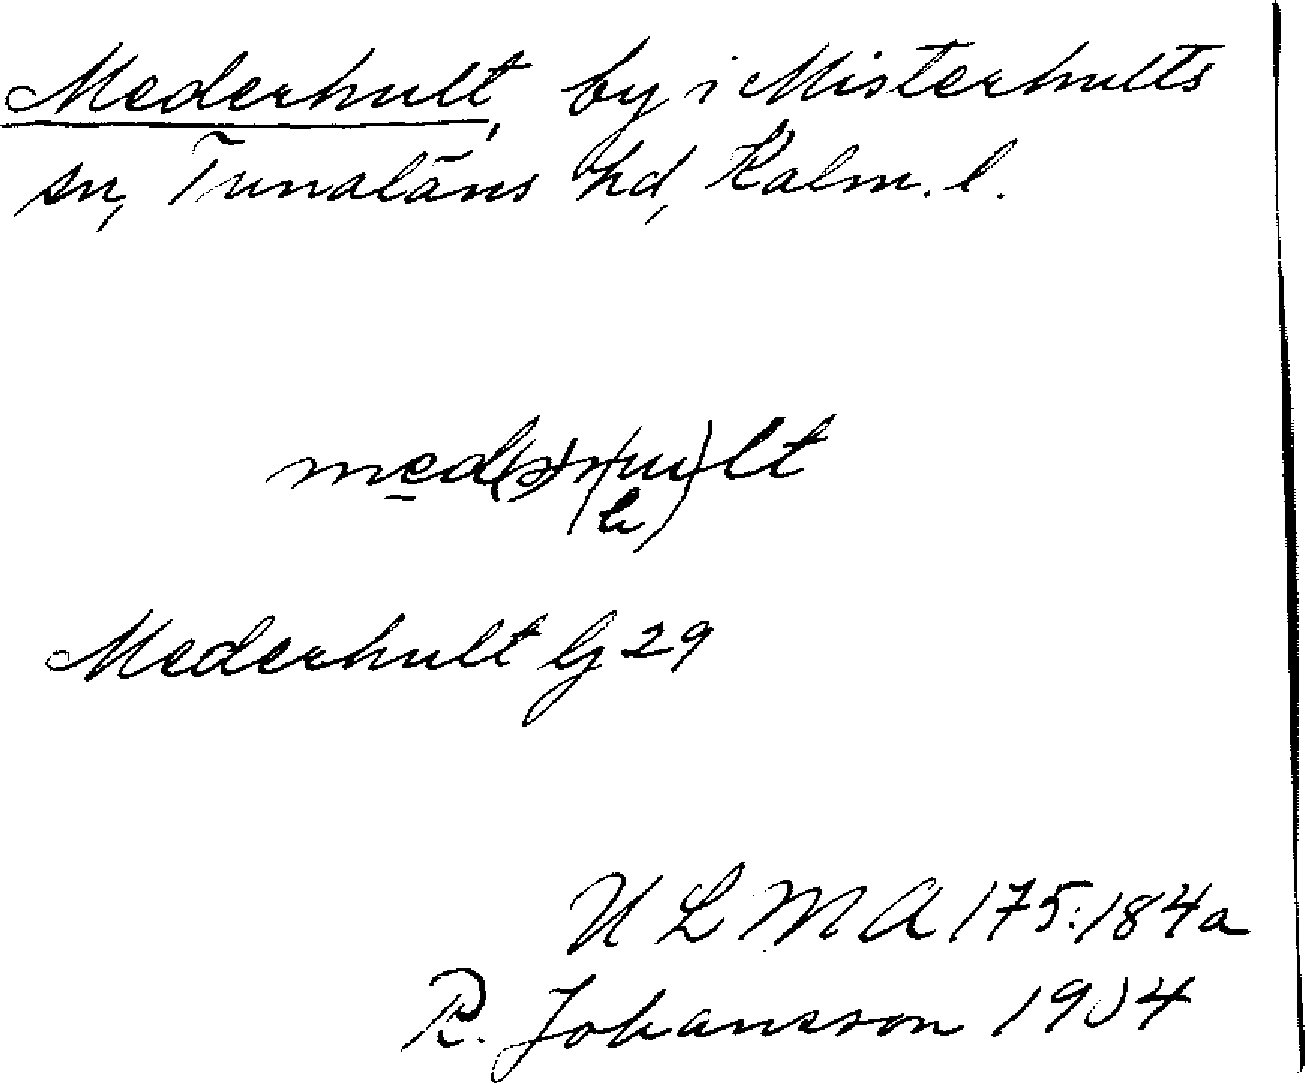 Mederhult, by i Misterhults
sn, Tunaläns hd, Kalm. l.
Mederhult G 29
ULMA 175:184a
R. Johansson 1904